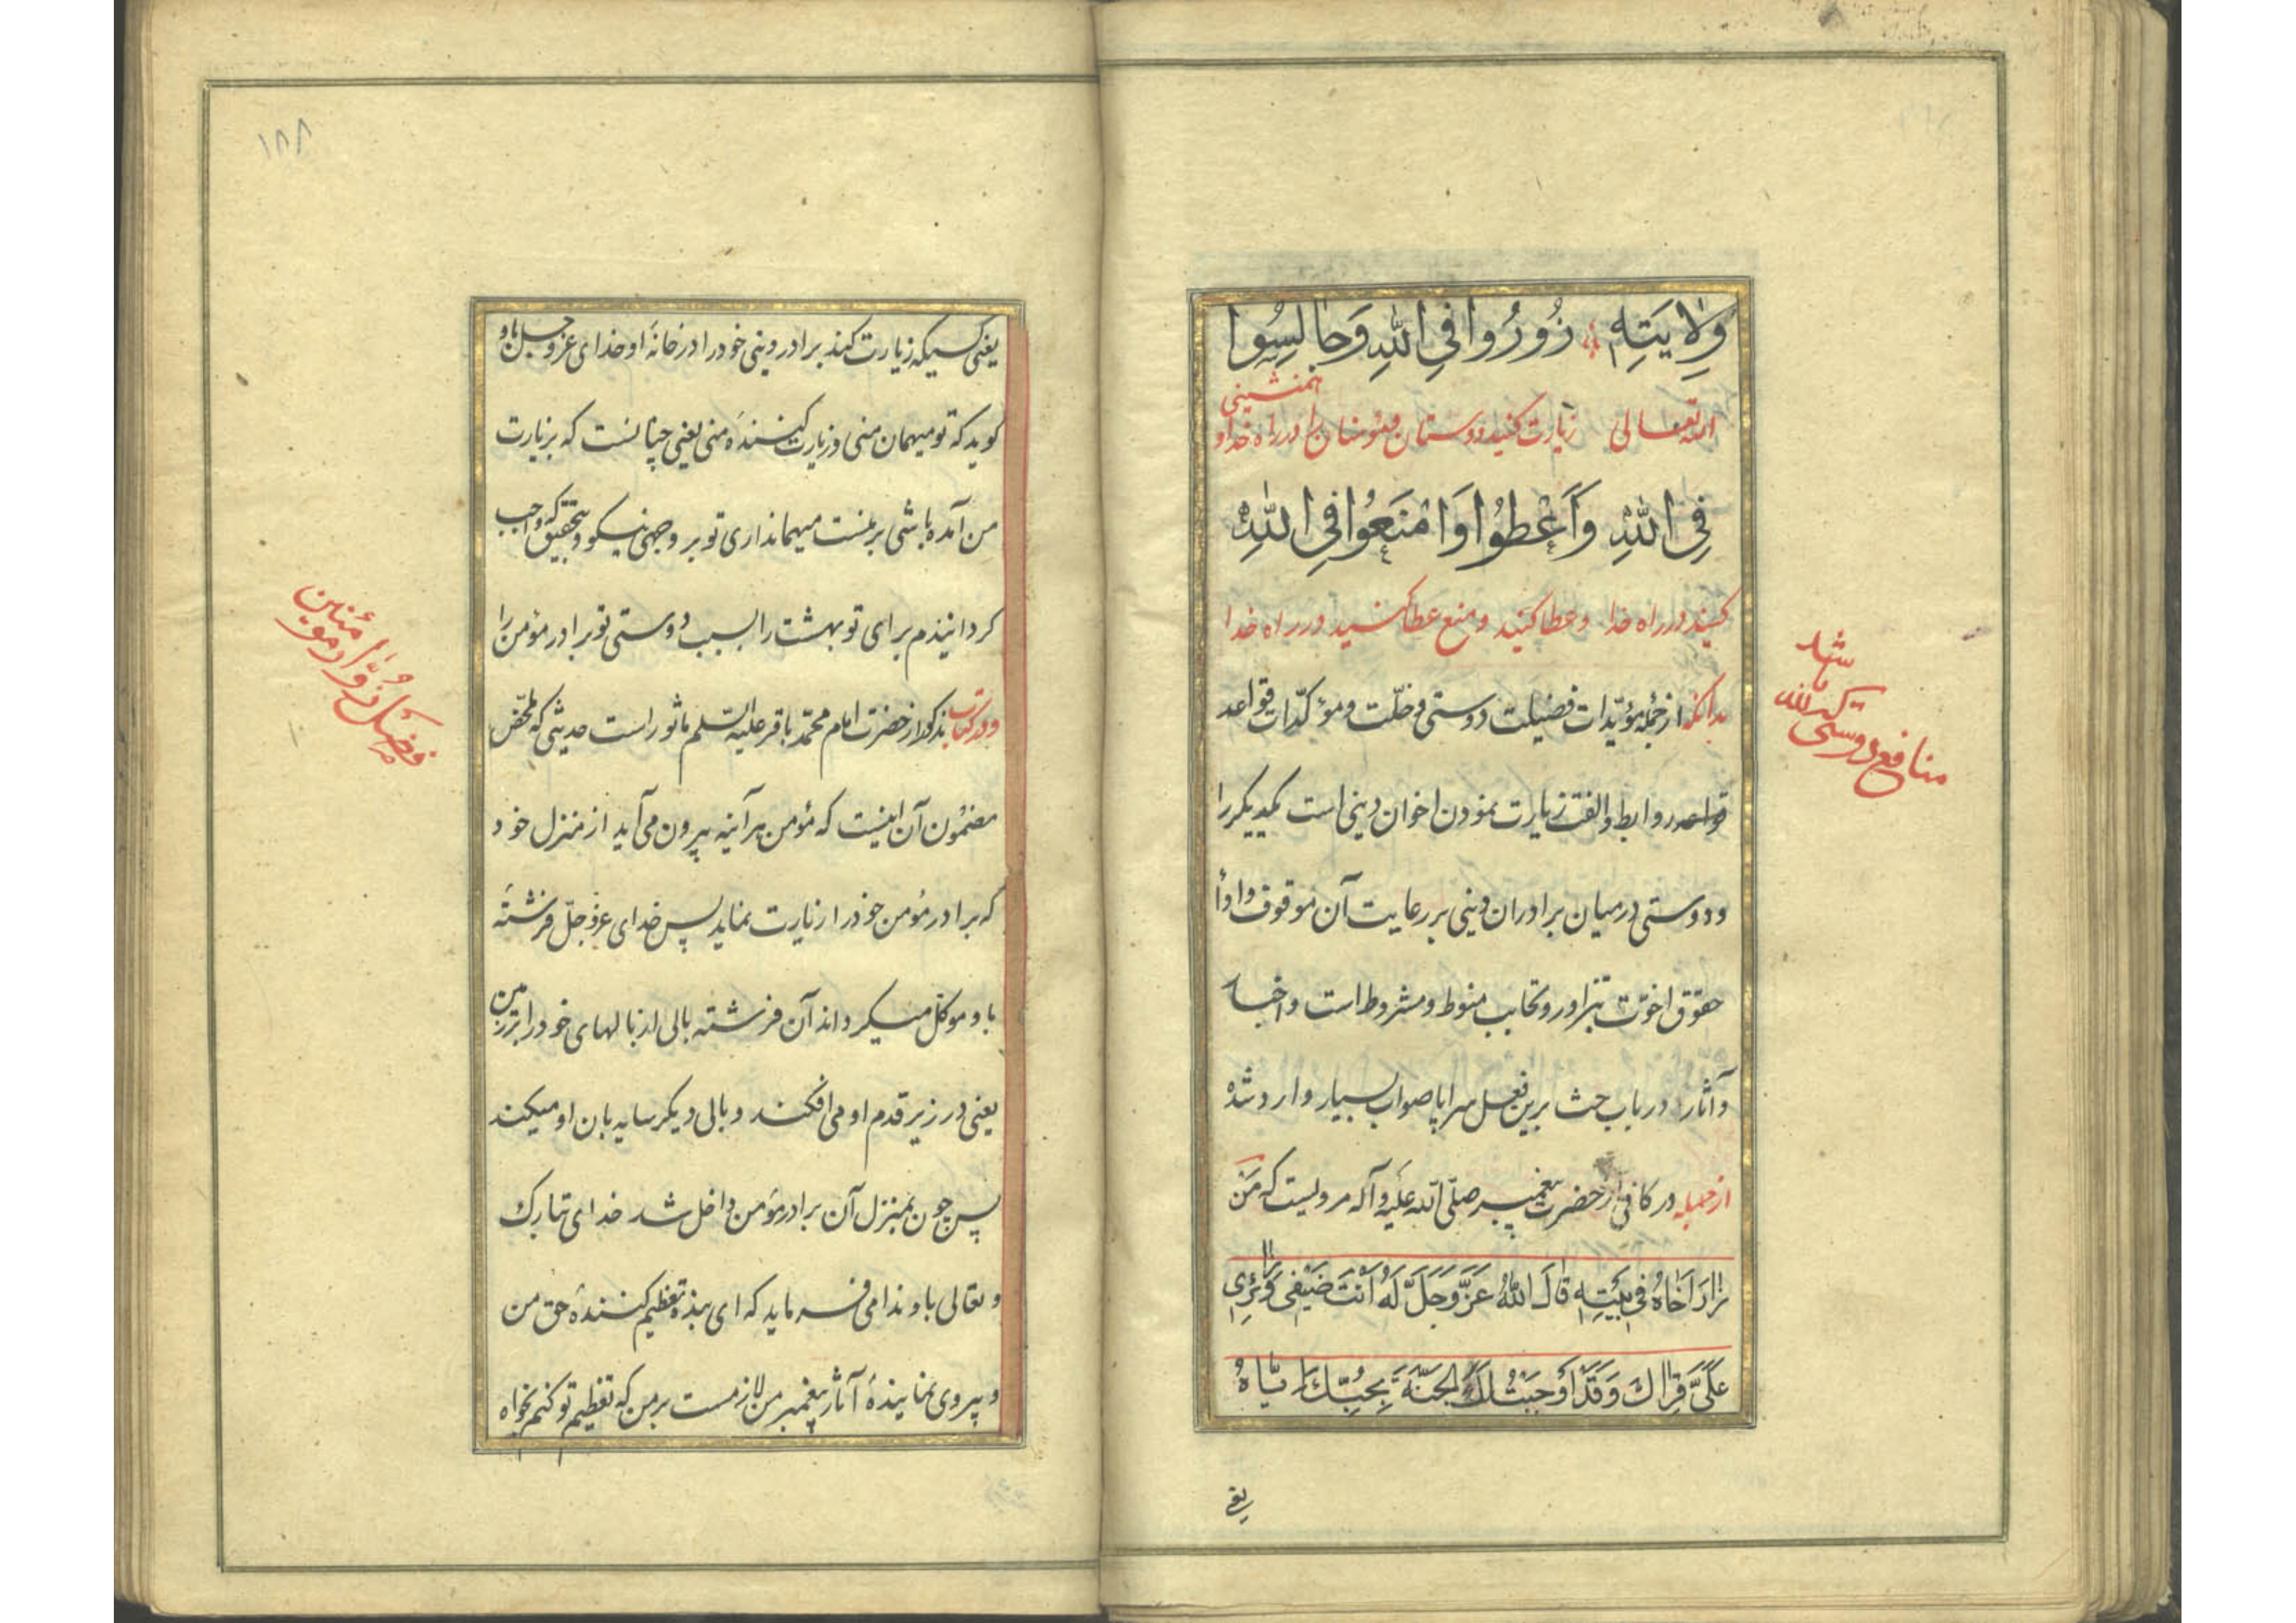 وِلَایَتِهِ زُورُوا فِي اللّٰهِ وَجَالِسُوا
همنشینی
اللّه تعالی زیارت کنید دوستان و مؤمنان را در راه خدا و
فِي اللّٰهِ وَاَعْطُوا وَامْنَعُوا فِي اللّٰهِ
کنید در راه خدا و عطا کنید و منع عطا کنید در راه خدا
بدانکه از جمله مؤیّدات فضیلت دوستی و خلّت و مؤکّدات قواعد
قواعد روابط و الفت زیارت نمودن اخوان دینی است یکدیگر را
و دوستی در میان برادران دینی بر رعایت آن موقوف و ادأ
حقوق اخوّت بتزاور و تحابب منوط و مشروط است و اخبار
و آثار در باب حث برین فعل سراپا صواب بسیار وارد شده
از جمله در کافی از حضرت پیغمبر صلّی اللّه علیه و آله مرویست که مَن
زَارَ اَخَاهُ فِي بَیْتِهِ قَالَ اللّٰهُ عَزَّوَجَلَّ لَهُ اَنْتَ ضَیْفِي وَزَائِرِي
عَلَيَّ قِرَاكَ وَقَدْ اَوْجَبْتُ لَكَ الْجَنَّةَ بِحُبِّكَ اِیَّاهُ
یعنی
منافع دوستی که للّه
باشد
۱۸۸
یعنی کسیکه زیارت کند برادر دینی خود را در خانه او خدای عزوجل باو
کوید که تو میهمان منی و زیارت کننده منی یعنی چنانست که بزیارت
من آمده باشی بر منست میهمانداری تو بر وجهی نیکو و بتحقیق که واجب
کردانیدم برای تو بهشت را بسبب دوستی تو برادر مؤمن را
و در کتاب مذکور از حضرت امام محمّد باقر علیه السّلم ماثور است حدیثی که ملخّص
مضمون آن اینست که مؤمن هر آینه بیرون می آید از منزل خود
که برادر مؤمن خود را زیارت نماید پس خدای عزوجلّ فرشتۀ
باو موکّل میکرداند آن فرشته بالی از بالهای خود را بر زمین
یعنی در زیر قدم او می افکند و بالی دیکر سایه بان او میکند
پس چون بمنزل آن برادر مؤمن داخل شد خدای تبارک
و تعالی باو ندا می فرماید که ای بنده تعظیم کنندۀ حق من
و پیروی نمایندۀ آثار پیغمبر من لازمست بر من که تعظیم تو کنم بخواه
فضل زُوّار مؤمنین